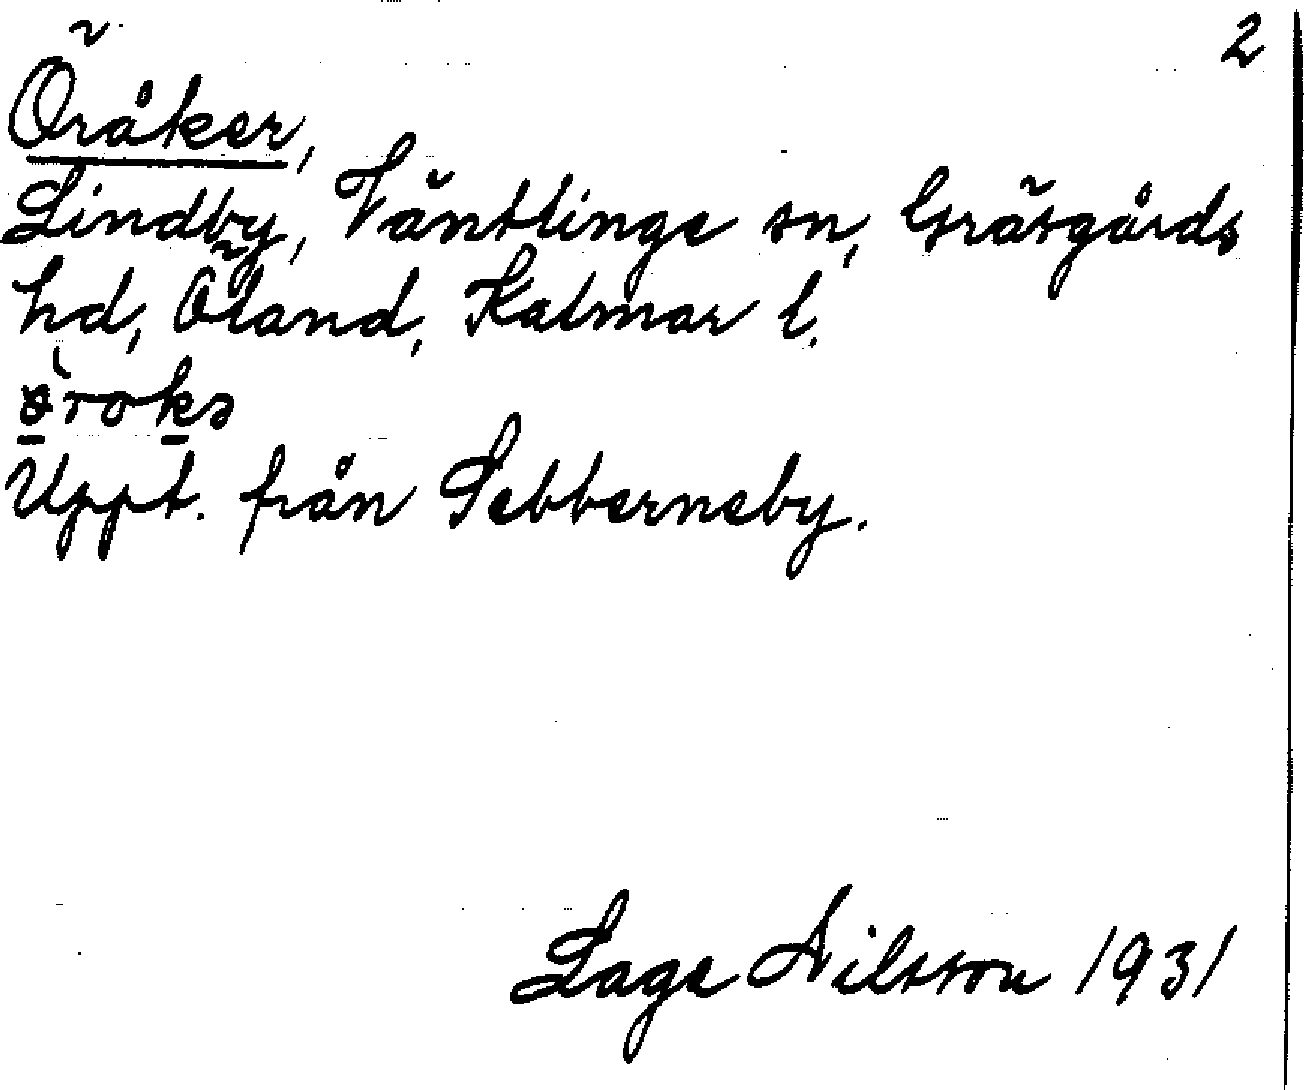 2
Öråker,
Lindby, Väntlinge sn, Gräsgårds
hd, Öland, Kalmar l.
Uppt. från Sebberneby.
Lage Nilsson 1931